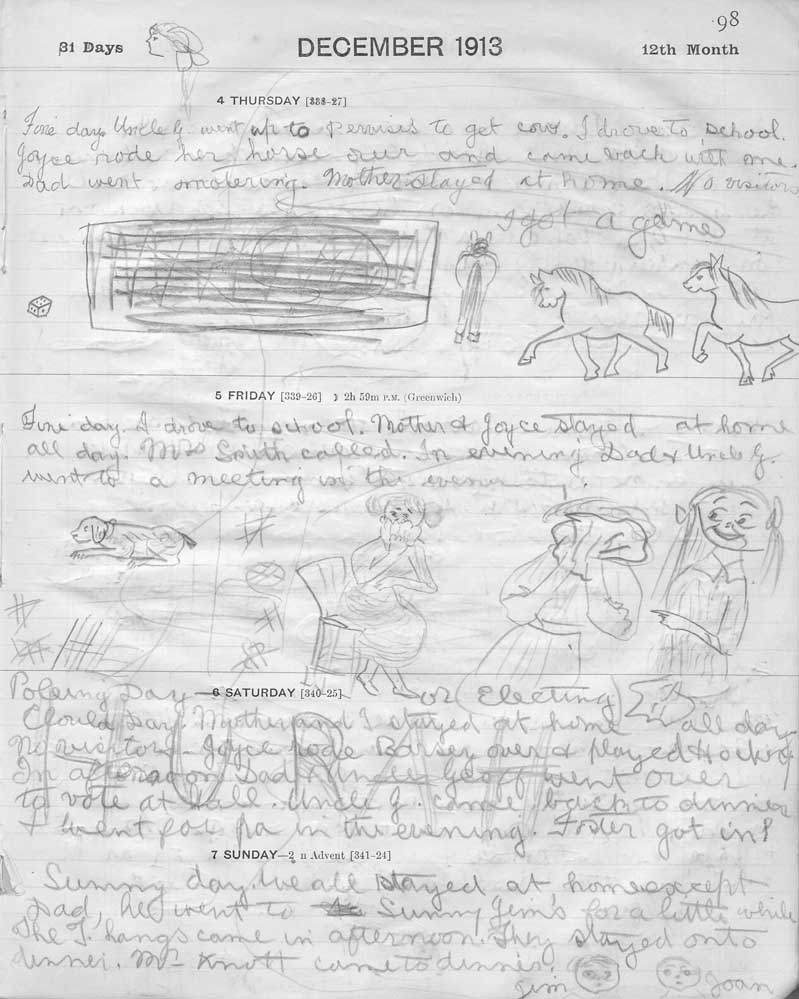 98
31 Days DECEMBER 1913 12th Month
4 THURSDAY [338-27]
Fine day. Uncle G. went up to to get cow. I drove to school.
Joyce rode her horse over and came back with me.
Dad went Mother stayed at home. No visitors
I got a game
5 FRIDAY [339-26] ☽ 2h 59m P.M. (Greenwich)
Fine day. I drove to school. Mother & Joyce stayed at home
all day. Mrs Smith called. In evening Dad & Uncle G.
went to a meeting in the evening.
Poleing Day — or Electing
6 SATURDAY [340-25]
HURAH
Could day. Mother and I stayed at home all day
No visitors - Joyce rode over & played Hockey
In afternoon Dad & Uncle Geoff went over
to vote at Hall. Uncle G. came back to dinner
I went for pa in the evening. Foster got in!
7 SUNDAY—2 n Advent [341-24]
Sunny day. We all stayed at home except
Dad, he went to Sunny Jim's for a little while
The T'hangs came in afternoon. They stayed onto
dinner. Mr Knott came to dinner.
Jim Joan